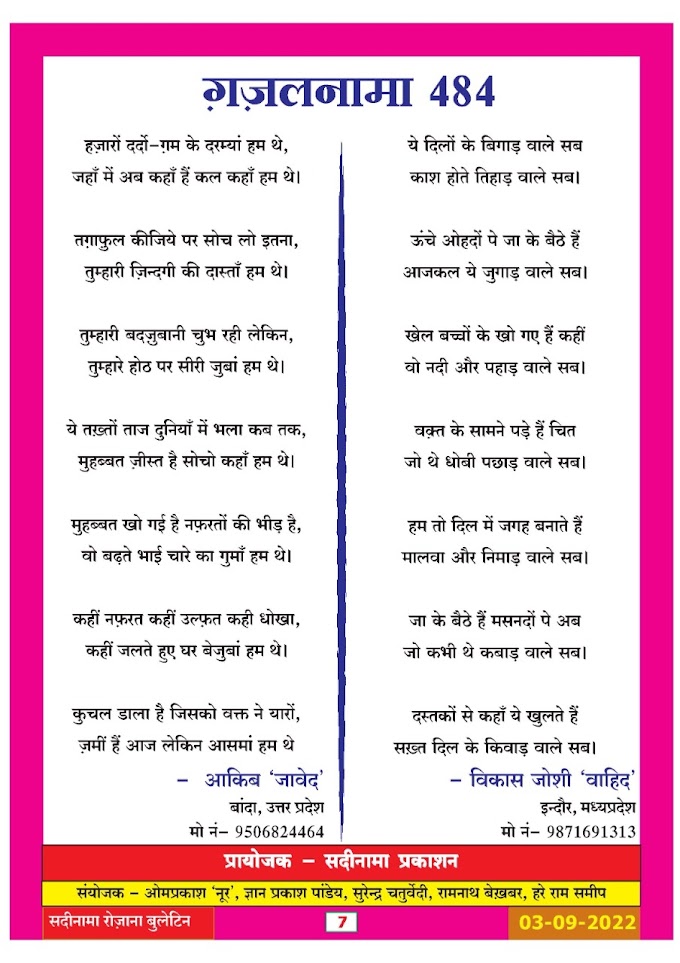 ग़ज़लनामा 484
हज़ारों दर्दो-ग़म के दरम्यां हम थे,
जहाँ में अब कहाँ हैं कल कहाँ हम थे।
तग़ाफ़ुल कीजिये पर सोच लो इतना,
तुम्हारी ज़िन्दगी की दास्ताँ हम थे।
तुम्हारी बदज़ुबानी चुभ रही लेकिन,
तुम्हारे होठ पर सीरी जुबां हम थे।
ये तख़्तों ताज दुनियाँ में भला कब तक,
मुहब्बत ज़ीस्त है सोचो कहाँ हम थे।
मुहब्बत खो गई है नफ़रतों की भीड़ है,
वो बढ़ते भाई चारे का गुमाँ हम थे।
कहीं नफ़रत कहीं उल्फ़त कही धोखा,
कहीं जलते हुए घर बेजुबां हम थे।
कुचल डाला है जिसको वक्त ने यारों,
ज़मीं हैं आज लेकिन आसमां हम थे
– आकिब ‘जावेद’
बांदा, उत्तर प्रदेश
मो नं– 9506824464
ये दिलों के बिगाड़ वाले सब
काश होते तिहाड़ वाले सब।
ऊंचे ओहदों पे जा के बैठे हैं
आजकल ये जुगाड़ वाले सब।
खेल बच्चों के खो गए हैं कहीं
वो नदी और पहाड़ वाले सब।
वक़्त के सामने पड़े हैं चित
जो थे धोबी पछाड़ वाले सब।
हम तो दिल में जगह बनाते हैं
मालवा और निमाड़ वाले सब।
जा के बैठे हैं मसनदों पे अब
जो कभी थे कबाड़ वाले सब।
दस्तकों से कहाँ ये खुलते हैं
सख़्त दिल के किवाड़ वाले सब।
– विकास जोशी ‘वाहिद’
इन्दौर, मध्यप्रदेश
मो नं– 9871691313
प्रायोजक – सदीनामा प्रकाशन
संयोजक – ओमप्रकाश ‘नूर’, ज्ञान प्रकाश पांडेय, सुरेन्द्र चतुर्वेदी, रामनाथ बेख़बर, हरे राम समीप
सदीनामा रोज़ाना बुलेटिन
7
03-09-2022